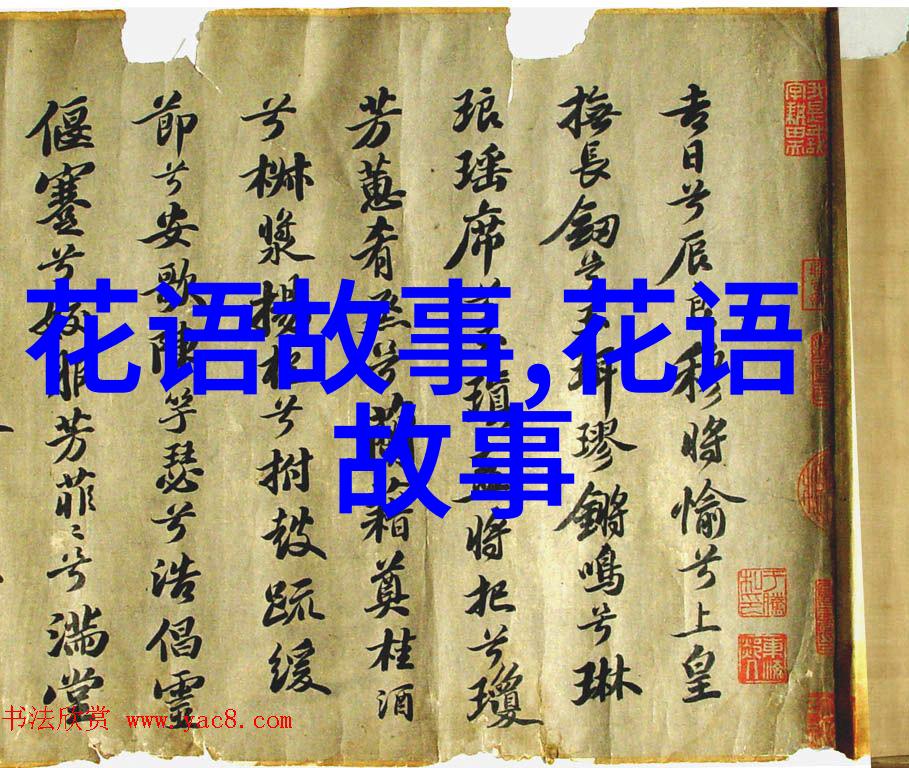 花语故事,花语
故事
吉日兮辰良穆將愉兮上皇
撫長劒兮玉珥璆鏘鳴兮琳
琅瑶席兮玉瑱盍將把兮瓊
芳蕙肴烝兮蘭藉奠桂酒
兮椒漿揚枹兮拊鼓疏緩
節兮安歌陳竽瑟兮浩倡靈
偃蹇兮姣服芳菲〻兮滿堂
书法欣赏 www.yac8.com